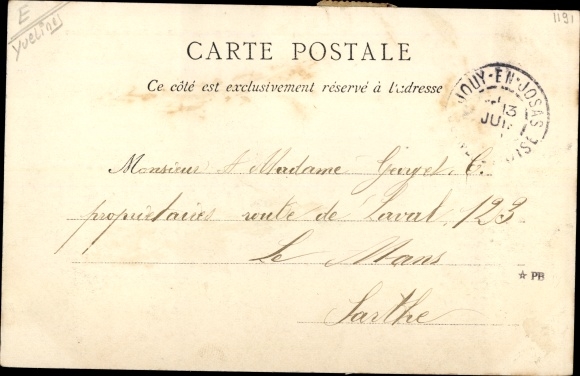 E
Yvelines
1191
CARTE POSTALE
Ce côté est exclusivement réservé à l'adresse
JOUY-EN-JOSAS
13
JUI
OISE
Monsieur & Madame C.
propriétaires route de Laval, 123
Le Mans
☆ PB
Sarthe